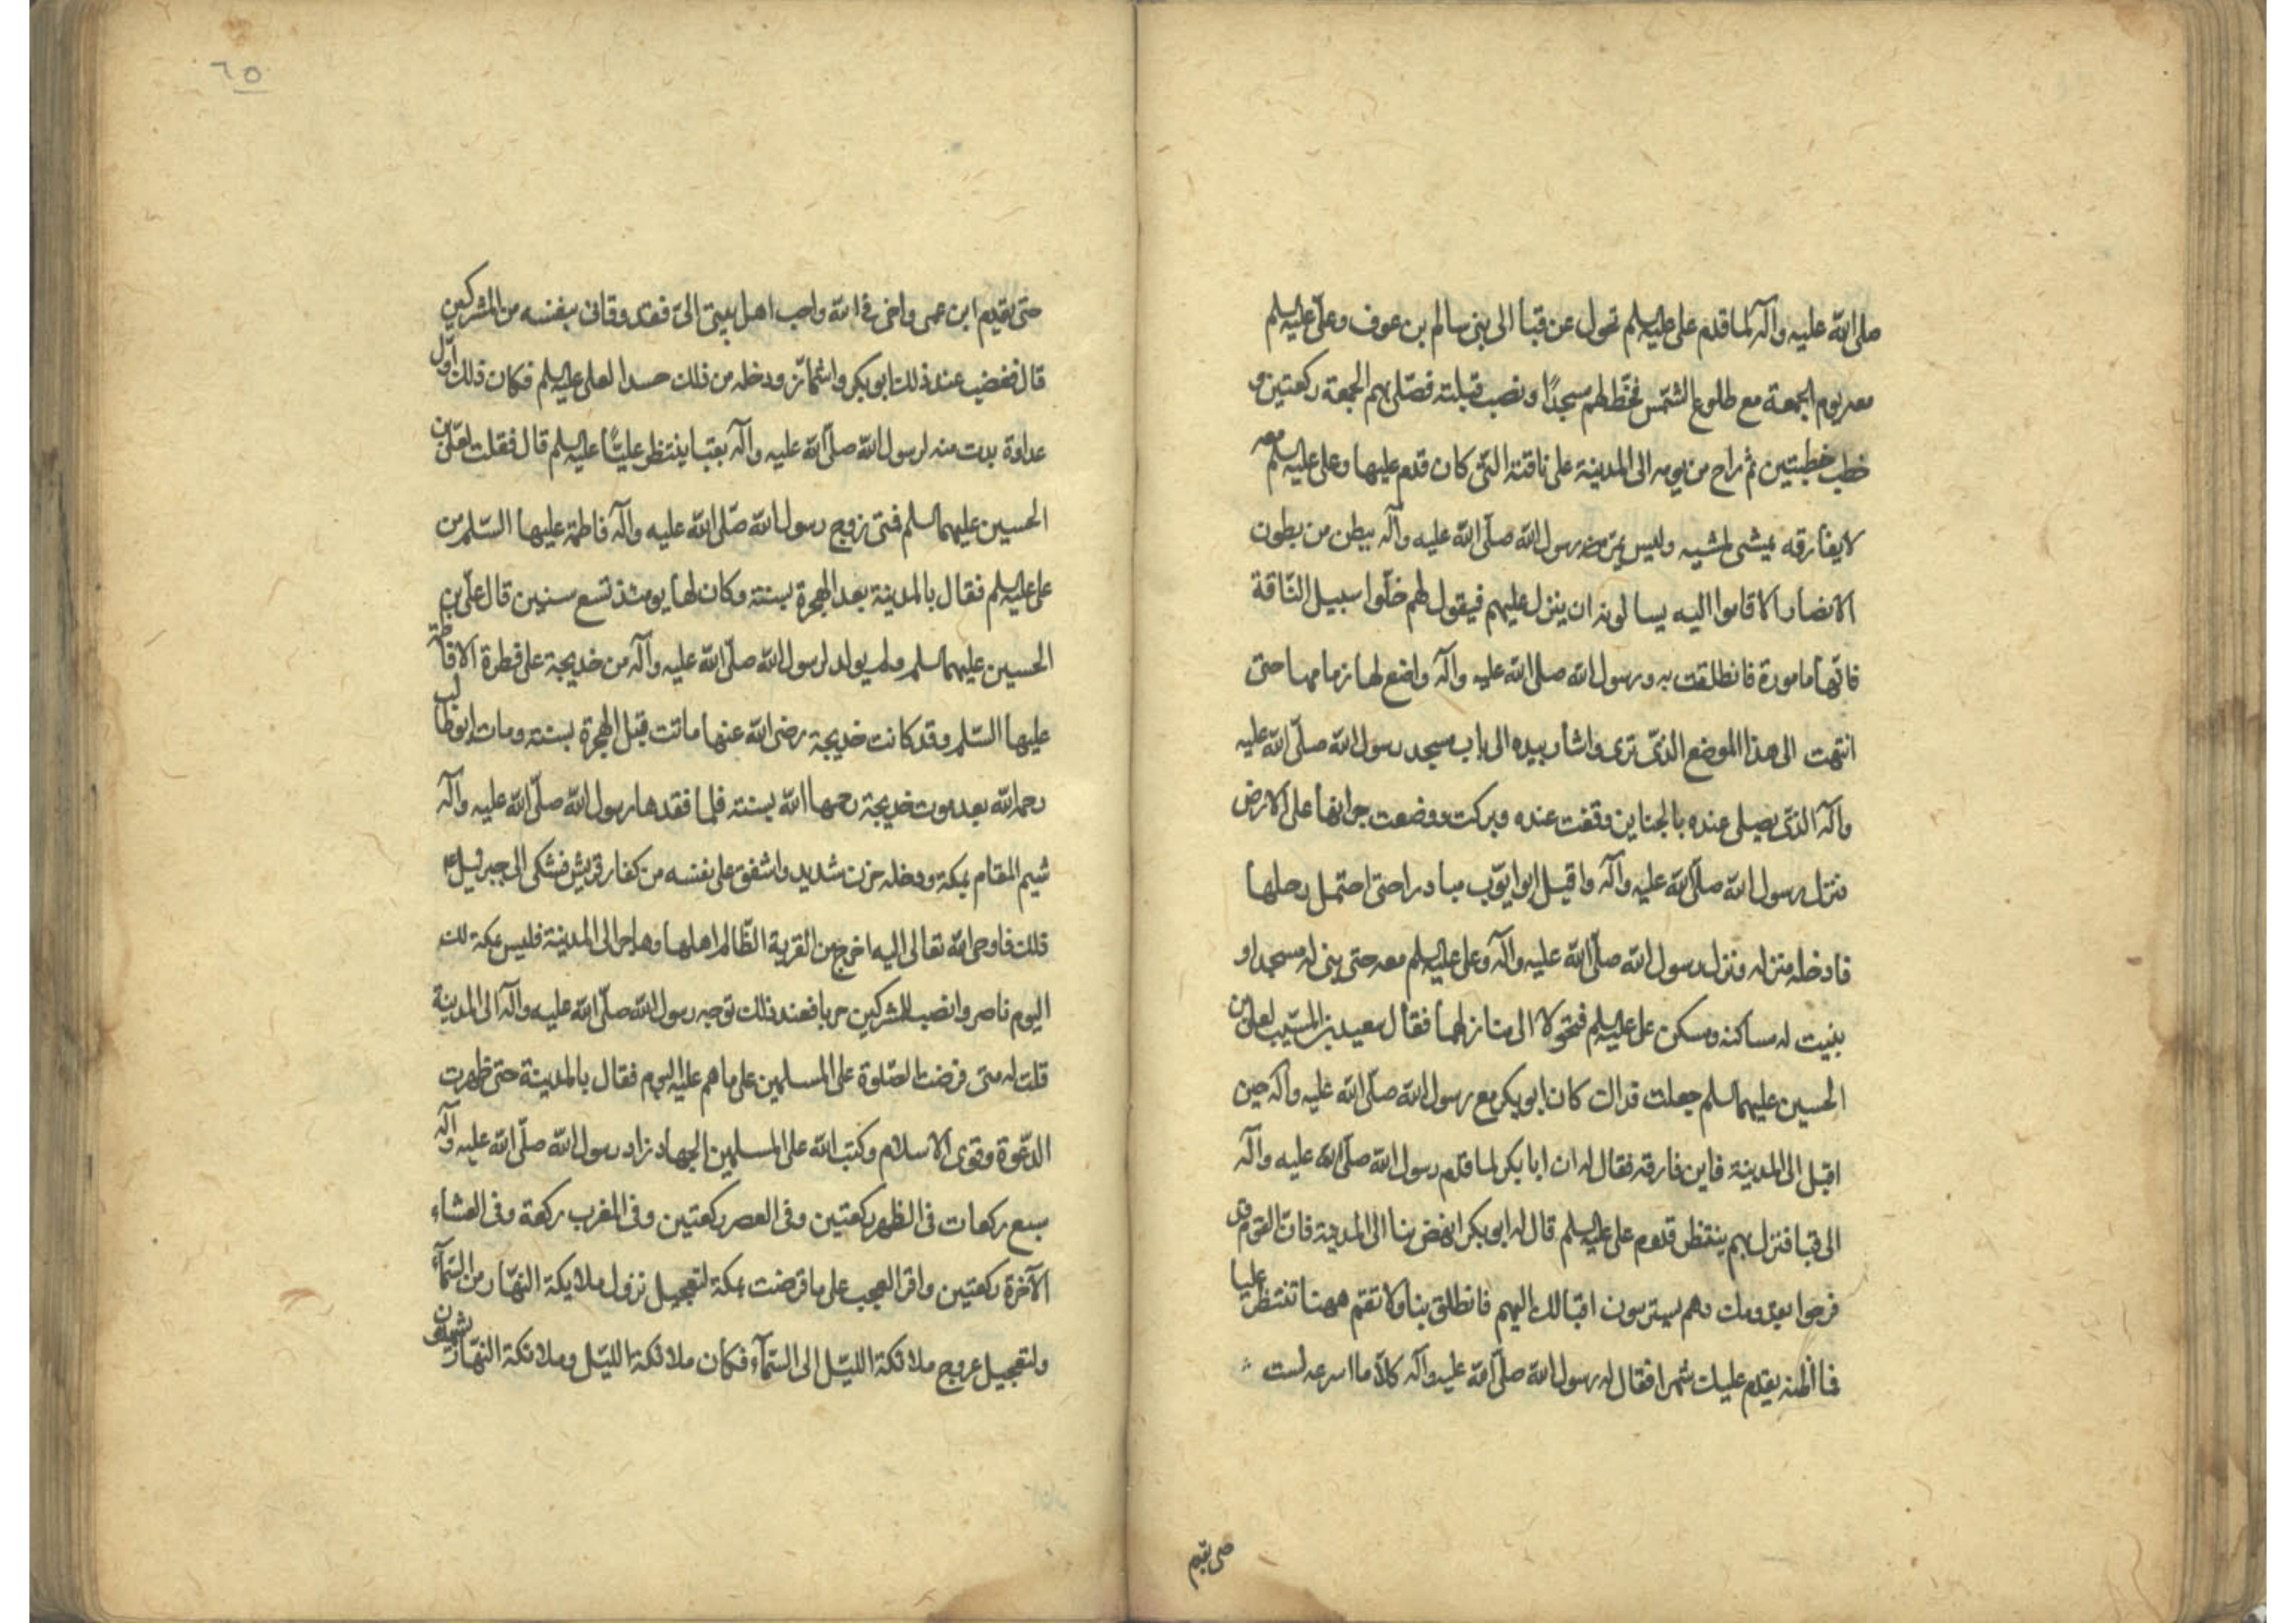 صلى الله عليه وآله لما قدم على عليه السلم تحول عن قبا الى بنى سالم بن عوف وعلى عليه السلم
معه يوم الجمعة مع طلوع الشمس فخط لهم مسجدًا ونصب قبلته فصلى بهم الجمعة ركعتين و
خطب خطبتين ثم راح من يومه الى المدينة على ناقته التى كان قدم عليها وعلى عليه السلم معه
لا يفارقه يمشى بمشيه وليس يمر رسول الله صلى الله عليه وآله ببطن من بطون
الانصار الا قاموا اليه يسالونه ان ينزل عليهم فيقول لهم خلوا سبيل الناقة
فانها مامورة فانطلقت به ورسول الله صلى الله عليه وآله واضع لها زمامها حتى
انتهت الى هذا الموضع الذى ترى واشار بيده الى باب مسجد رسول الله صلى الله عليه
وآله الذى يصلى عنده بالجناين وقفت عنده وبركت ووضعت جرانها على الارض
فنزل رسول الله صلى الله عليه وآله واقبل ابو ايوب مبادرا حتى احتمل رحلها
فادخله منزله ونزل رسول الله صلى الله عليه وآله وعلى عليه السلم معه حتى بنى له مسجدا و
بنيت له مساكنه ومسكن على عليه السلم فتحولا الى منازلهما فقال سعيد بن المسيب لعلى بن
الحسين عليهما السلم جعلت فداك كان ابو بكر مع رسول الله صلى الله عليه وآله حين
اقبل الى المدينة فاين فارقه فقال له ان ابا بكر لما قدم رسول الله صلى الله عليه وآله
الى قبا فنزل بهم ينتظر قدوم على عليه السلم قال له ابو بكر انهض بنا الى المدينة فان القوم قد
فرحوا بقدومك وهم يستريبون اقبالك اليهم فانطلق بنا ولا تقم ههنا تنتظر عليا
فما اظنه يقدم عليك شهرا فقال له رسول الله صلى الله عليه وآله كلا ما اسرعه لست
حتى يقدم
٦٥
حتى يقدم ابن عمى واخى فى الله واحب اهل بيتى الىّ فقد وقانى بنفسه من المشركين
قال فغضب عند ذلك ابو بكر واشمأز ودخله من ذلك حسدا لعلى عليه السلم فكان ذلك اول
عداوة بدت منه لرسول الله صلى الله عليه وآله بقبا ينتظر عليًا عليه السلم قال فقلت لعلى بن
الحسين عليهما السلم فمتى زوج رسول الله صلى الله عليه وآله فاطمة عليها السلم من
على عليه السلم فقال بالمدينة بعد الهجرة بسنة وكان لها يومئذ تسع سنين قال على بن
الحسين عليهما السلم ولم يولد لرسول الله صلى الله عليه وآله من خديجة على فطرة الا فاطمة
عليها السلم وقد كانت خديجة رضى الله عنها ماتت قبل الهجرة بسنة ومات ابو طالب
رحمه الله بعد موت خديجة رحمها الله بسنة فلما فقدها رسول الله صلى الله عليه وآله
شيم المقام بمكة ودخله حزن شديد واشفق على نفسه من كفار قريش فشكى الى جبرئيل ع
ذلك فاوحى الله تعالى اليه اخرج من القرية الظالم اهلها وهاجر الى المدينة فليس بمكة لك
اليوم ناصر وانصب للمشركين حربا فعند ذلك توجه رسول الله صلى الله عليه وآله الى المدينة
قلت له متى فرضت الصلوة على المسلمين على ما هم عليه اليوم فقال بالمدينة حتى ظهرت
الدعوة وقوى الاسلام وكتب الله على المسلمين الجهاد زاد رسول الله صلى الله عليه وآله
سبع ركعات فى الظهر ركعتين وفى العصر ركعتين وفى المغرب ركعة وفى العشاء
الآخرة ركعتين واقر العجب على ما فرضت بمكة لتعجيل نزول ملايكة النهار من السمآء
ولتعجيل عروج ملائكة الليل الى السمآء فكان ملائكة الليل وملائكة النهار يشهدون